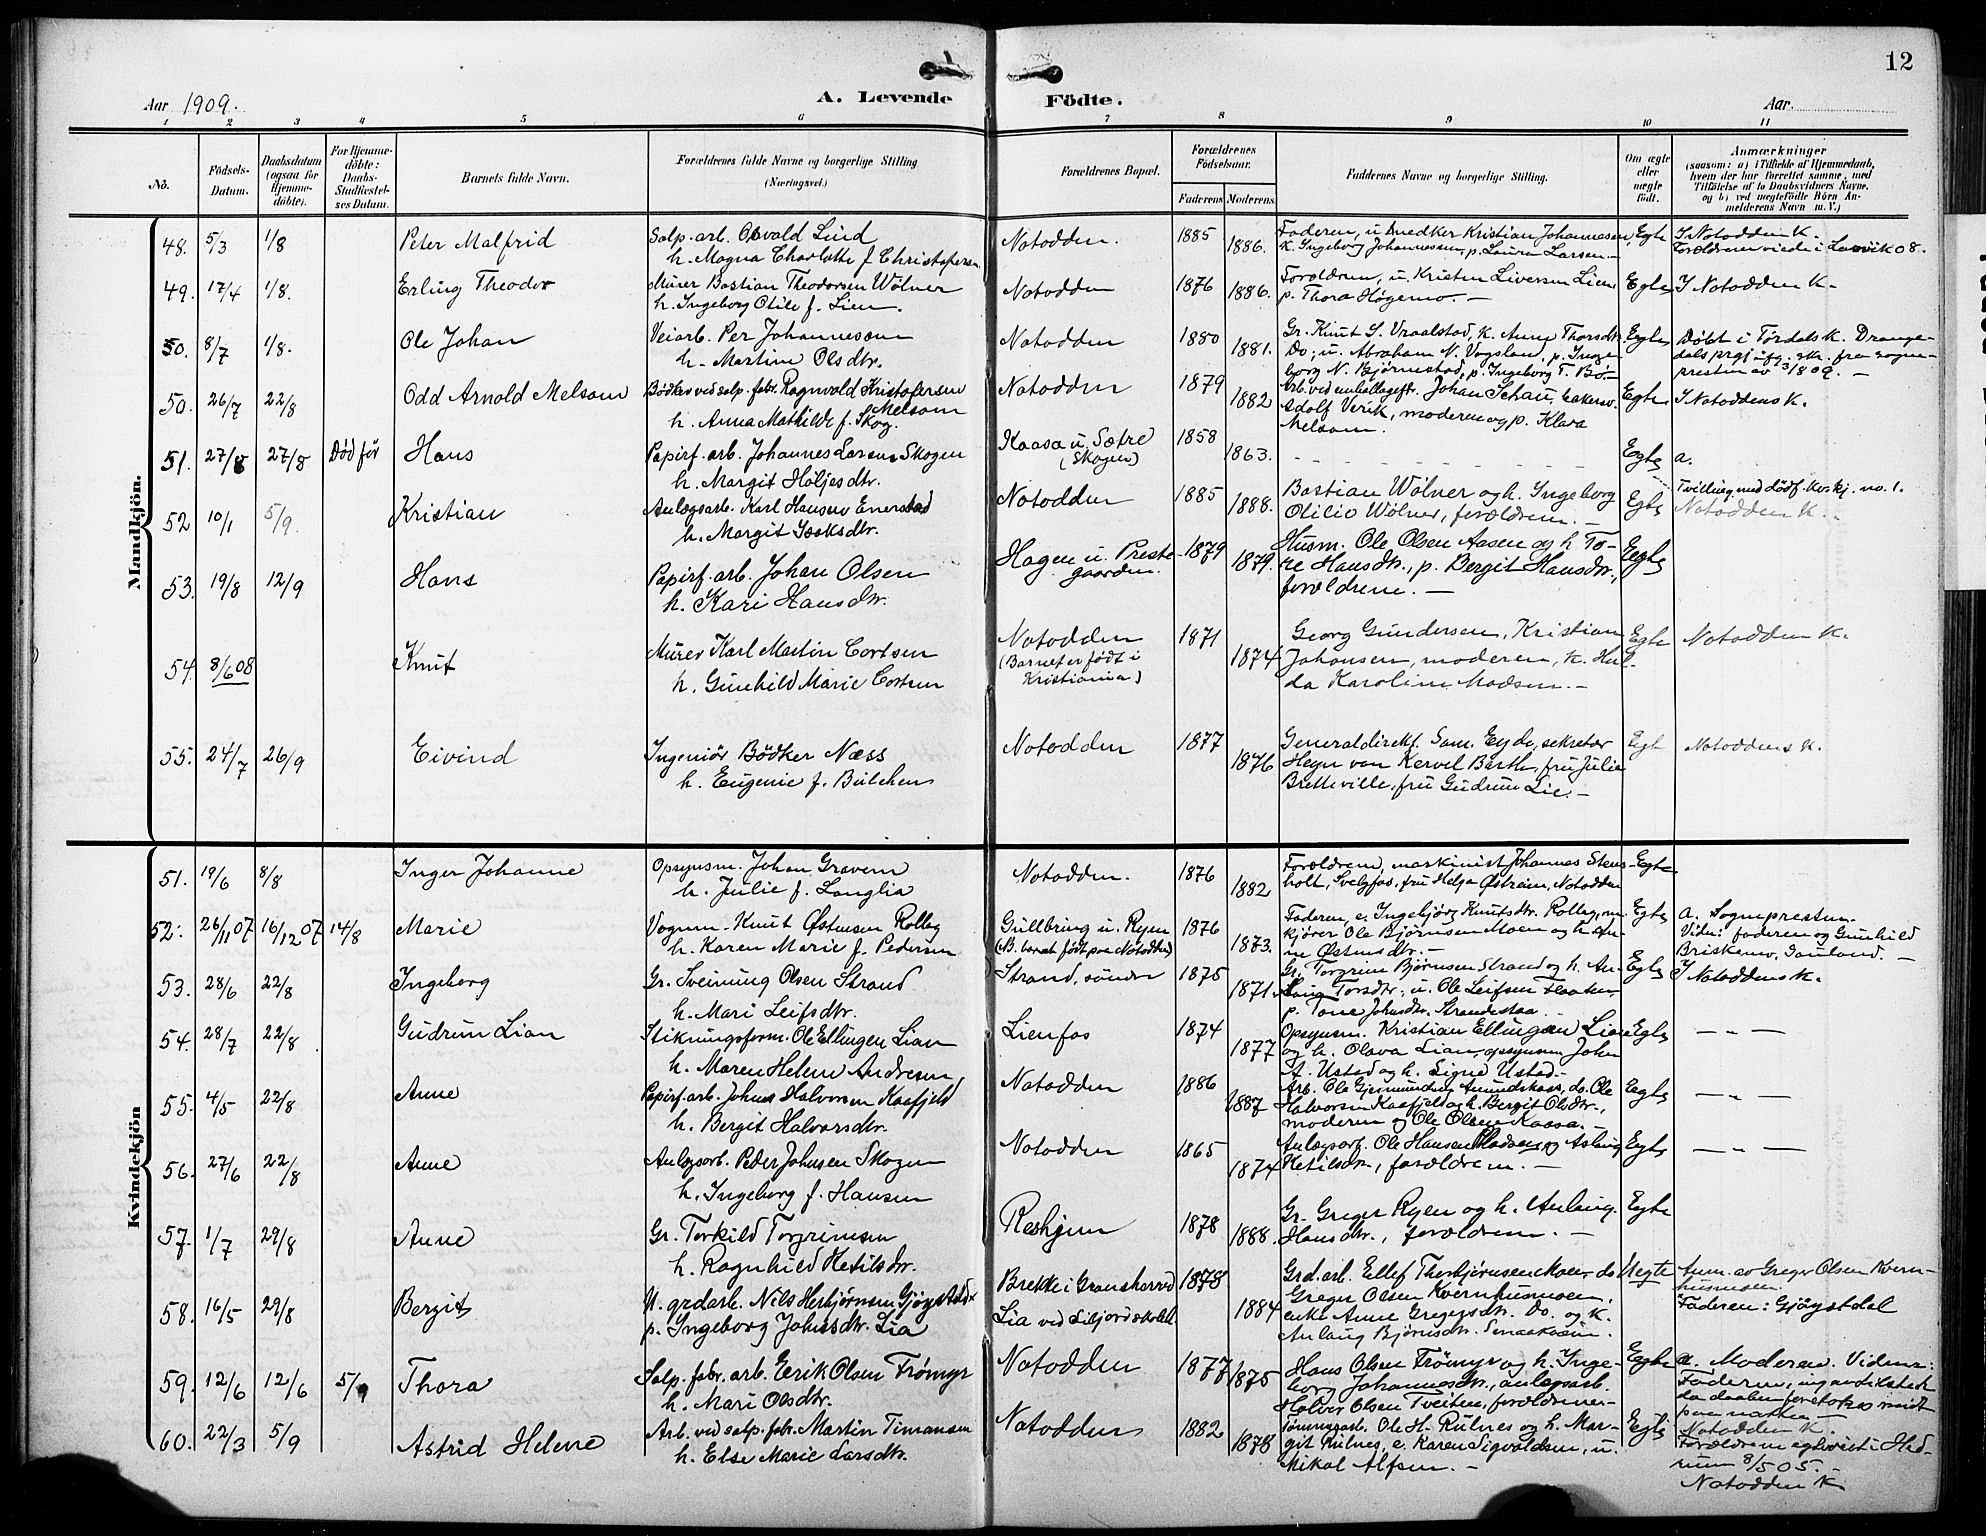 12
Aar 1909.
A. Levende Födte.
Aar.
1 2 3 4 5 6 7 8 9 10 11
No.
Födsels-Datum.
Daabsdatum (ogsaa for Hjemme-döbte).
For Hjemme-döbte: Daabs-Stadfæstel-ses Datum.
Barnets fulde Navn.
Forældrenes fulde Navne og borgerlige Stilling. (Næringsvei.)
Forældrenes Bopæl.
Forældrenes Födselsaar.
Faderens Moderens.
Faddernes Navne og borgerlige Stilling.
Om ægte eller uægte födt.
Anmærkninger
(saasom: a) i Tilfælde af Hjemmedaab,
hvem der har forrettet samme, med
Tilföielse af to Daabsvidners Navne.
og b) ved uægtefödte Börn An-
melderens Navn m. V.)
Mandkjön.
48. 5/3 1/8 Peter Malfrid
Salp. arb. Osvald Lind
h. Magna Charlotte f. Christofersen
Notodden. 1885 1886.
Faderen, u. snedker Kristian Johannesen,
k. Ingeborg Johannessen, p. Laura Larsen —
Egte
I Notodden K.
Forældrene viede i Larvik 08.
49. 17/4 1/8. Erling Theodor
Murer Bastian Theodorsen Wölner
h. Ingeborg Otilie f. Lien.
Notodden 1876 1886.
Forældrene, u. Kristen Liversen Lien
p. Thora Høgemo. —
Egte I Notodden K.
50. 8/7 1/8. Ole Johan
Veiarb. Per Johannessen
h. Martine Olsdtr.
Notodden 1880 1881.
Gr. Knut S. Vraalstad, k. Anne Thorsdtr.
Do, u. Abraham N. Vogsland, p. Inge-
borg N. Bjørnestad, p. Ingeborg T. Bø. —
Egte
Døbt i Tørdals K. Drange-
dals prgj. ifg. skr. fra sogne-
presten av 3/8 09. —
50. 26/7 22/8 Odd Arnold Melsom
Bødker ved salp. fabr. Ragnvald Kristofersen
Melsom
h. Anna Mathilde f. Skog.
Notodden 1879 1882
Arb. ved emballagef. Johan Schau,
Adolf Verik, moderen og p. Klara
Melsom.
Egte I Notoddens K.
51. 27/8 27/8 Død før Hans
Papirf. arb. Johannes Larsen Skogen
h. Margit Høljesdtr.
Kaasa u. Sætre
(Skogen)
1858 1863.
Egte a.
52 10/1 5/9. Kristian
Anlægsarb. Karl Hansen Enerstad
h. Margit Isaksdtr.
Notodden 1885 1888.
Bastian Wölner og h. Ingeborg
Otilie Wölner, forældrene. —
Egte
Tvilling med dødf. kv.kj. no. 1.
Notodden K.
53. 19/8 12/9 Hans
Papirf. arb. Johan Olsen
h. Kari Hansdtr.
Hagen u. Preste-
gaarden.
1879 1879.
Husm. Ole Olsen Aasen og h. To-
ne Hansdtr., p. Bergit Hansdtr.,
forældrene. —
Egte
54. 8/6 08 Knut
Murer Karl Martin Cortsen
h. Gunhild Marie Cortsen
Notodden
(Barnet er født i
Kristiania)
1871 1874
Georg Gundersen, Kristian
Johansen, moderen, k. Hul-
da Karoline Madsen. —
Egte Notodden K.
55. 24/7 26/9 Eivind
Ingeniør Bödker Næss
h. Eugenie f. Bülcken
Notodden 1877 1876
Generaldirekt. Sam. Eyde, sekretær
Heyn van Kervel Barth, fru Julie
Bretteville, fru Gudrun Lie. —
Egte Notoddens K.
Kvindekjön
51. 19/6 8/8 Inger Johanne
Opsynsm. Johan Gravem
h. Julie f. Langlia
Notodden. 1876 1882
Forældrene, maskinist Johannes Stens-
holt, Svelgfos, fru Helga Østreim, Notodden
Egte
52. 26/11 07 16/12 07 14/8 Marie
Vognm. Knut Østensen Rollag
h. Karen Marie f. Pedersen
Gullbring u. Ryen
(B. barnet født paa Notodden)
1876 1873.
Faderen, e. Ingebjørg Knutsdtr. Rollag,
kjører Ole Bjørnsen Moen og h. An-
ne Østensdtr. —
Egte
a. Sognepresten.
Vidn: faderen og Gunhild
Briskemo, Sauland. —
53. 28/6 22/8 Ingeborg
Gr. Sveinung Olsen Strand
h. Mari Leifsdtr.
Strand, søndre 1875 1871.
Gr. Torgrim Bjørnsen Strand og h. An-
laug Torsdtr., u. Ole Leifsen Haaten,
p. Tone Johnsdtr. Strandestaa. —
Egte I Notoddens K.
54. 28/7 22/8 Gudrun Lian
Stikningsform. Ole Ellingen Lian
h. Maren Helene Andresen
Lienfos 1874 1877
Opsynsm. Kristian Ellingsen Lian
og h. Olava Lian, opsynsm. Johan
A. Ustad og h. Signe Ustad. —
Egte — „ —
55. 4/5 22/8 Anne
Papirf. arb. Johnes Halvorsen Kaafjeld
h. Bergit Halvorsdtr.
Notodden 1886 1887
Arb. Ole Gjermundsen Amundskaas, do. Ole
Halvorsen Kaafjeld og h. Bergit Olsdtr.,
moderen og Ole Olsen Kaasa. —
Egte — „ —
56. 27/6 22/8 Anne
Anlægsarb. Peder Johnsen Skogen
h. Ingeborg f. Hansen
Notodden 1865 1874
Anlægsarb. Ole Hansen og Aslaug
Ketilsdtr., forældrene. —
Egte — „ —
57. 1/7 29/8 Anne
Gr. Torkild Torgrimsen
h. Ragnhild Ketilsdtr.
Reshjem 1878 1888.
Gr. Greger Ryen og h. Anlaug
Hansdtr., forældrene. —
Egte
58. 16/5 29/8 Bergit
U. grdarb. Nils Herbjørnsen Gjøystdal
p. Ingeborg Johnsdtr. Lia
Brekke i Gransherred
Lia ved Liljord skole
1878 1884
Grd. arb. Ellef Thorbjørnsen Moen, do
Greger Olsen Kvernhusmoen,
enke Anne Gregersdtr. Do. og k.
Anlaug Bjørnsdtr.
Uegte
Anm. av Greger Olsen Kvern-
husmoen.
Faderen: Gjøystdal
59. 12/6 12/6 5/9 Thora
Salp. fabr. arb. Eerik Olsen Frømyr
h. Mari Olsdtr.
Notodden 1877 1875
Hans Olsen Frömyr og h. Inge-
borg Johannesdtr., anlægsarb.
Halvor Olsen Tveiten, forældrene —
Egte
a. Moderen. Vidne:
Faderen, ingen tilstede
da daaben foretokes midt
paa natten. —
Notodden K.
60. 22/3 5/9 Astrid Helene
Arb. ved salp. fabr. Martin Timansen
h. Else Marie Larsdtr.
Notodden 1882 1878
Tømmgsarb. Ole H. Rulnes og h. Mar-
git Rulnes, e. Karen Sigvaldsen, u.
Mikal Alfsen. —
Egte
Forældrene egteviet i Hed-
rum 8/5 05. —
Notodden K.